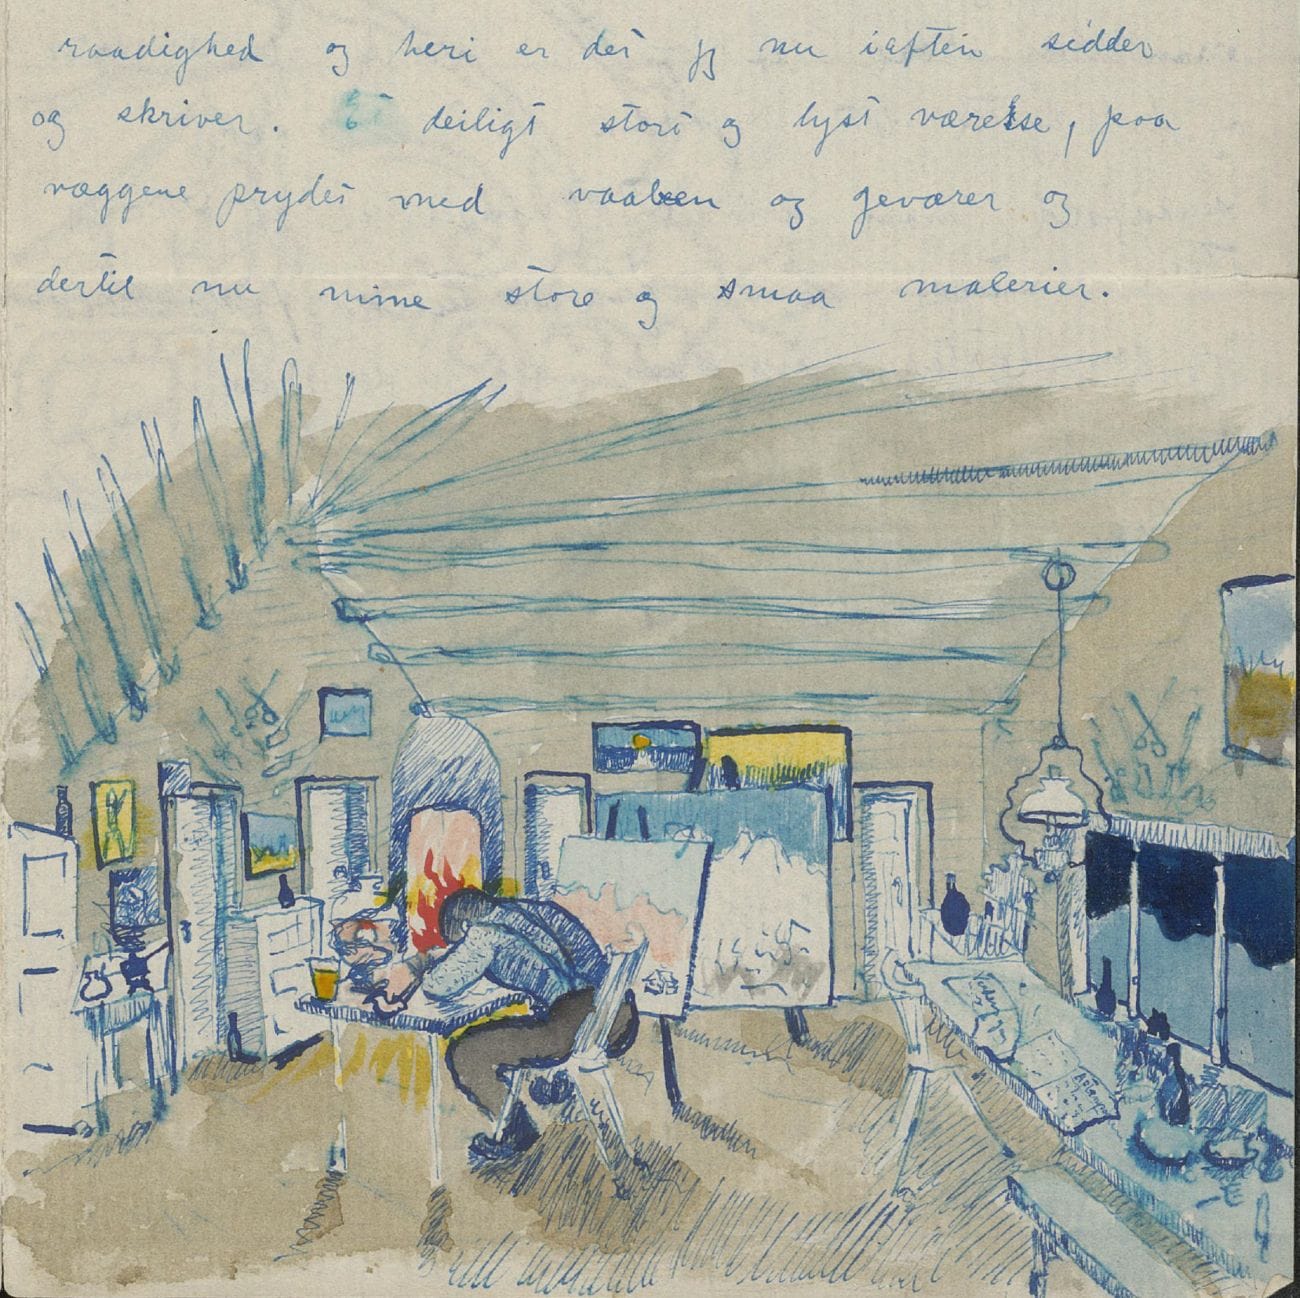 raadighed og heri er det jeg nu iaften sidder
og skriver. Et deiligt stort og lyst værelse, paa
væggene prydet med vaaben og geværer og
dertil nu mine store og smaa malerier.